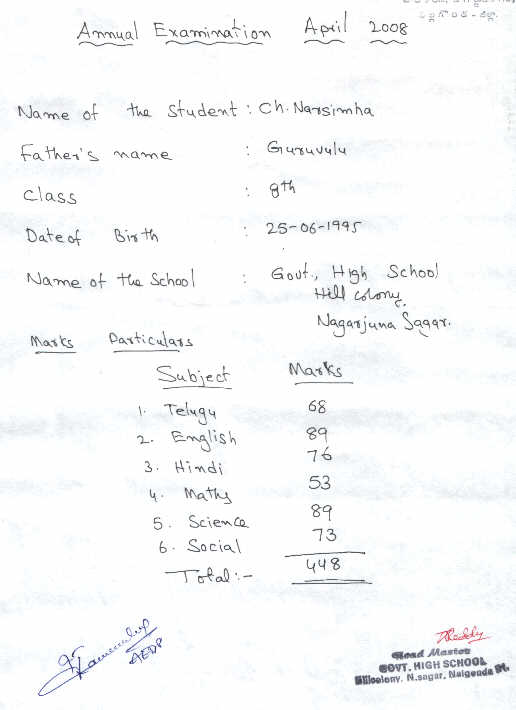 Annual Examination April 2008
Name of the Student : Ch. Narsimha
Father's name : Guruvulu
Class : 8th
Date of Birth : 25-06-1995
Name of the School : Govt., High School
Hill colony,
Nagarjuna Sagar.
Marks Particulars
Subject Marks
1. Telugu 68
2. English 89
3. Hindi 76
4. Maths 53
5. Science 89
6. Social 73
Total:- 448
AEDP
Reddy
Head Master
GOVT. HIGH SCHOOL
Hillcolony, N.sagar, Nalgonda Dt.